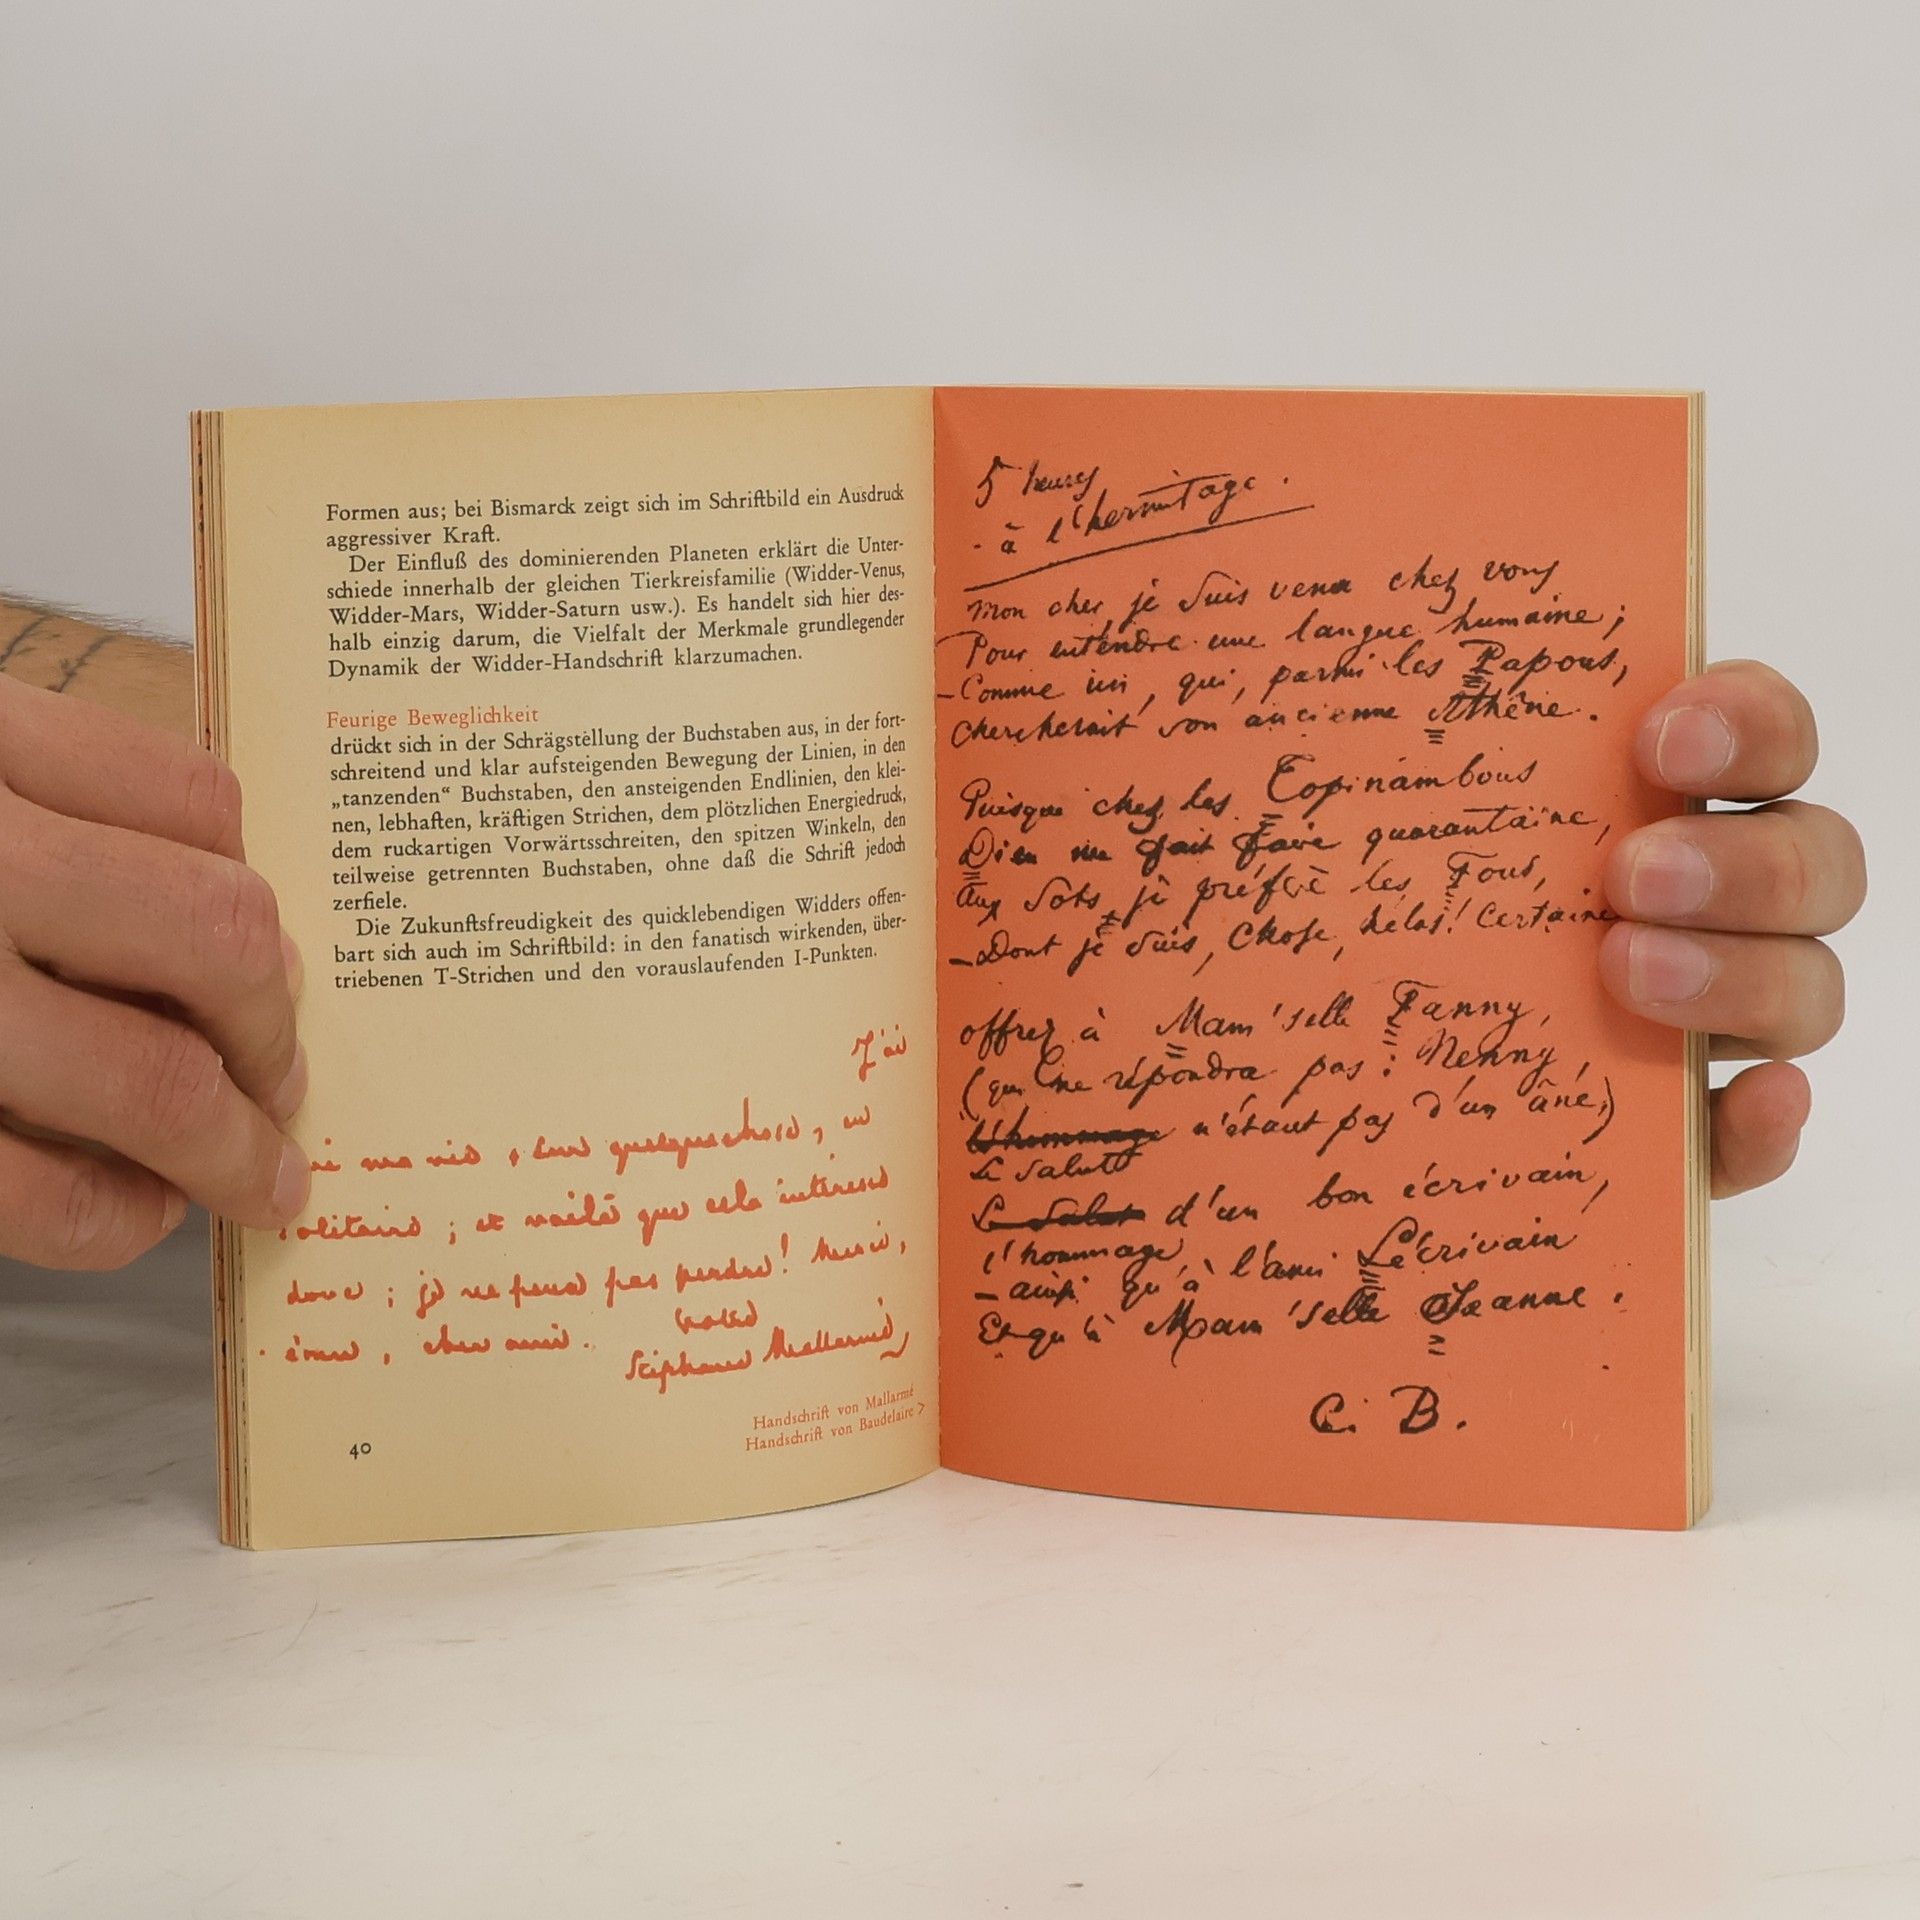 Formen aus; bei Bismarck zeigt sich im Schriftbild ein Ausdruck
aggressiver Kraft.
Der Einfluß des dominierenden Planeten erklärt die Unter-
schiede innerhalb der gleichen Tierkreisfamilie (Widder-Venus,
Widder-Mars, Widder-Saturn usw.). Es handelt sich hier des-
halb einzig darum, die Vielfalt der Merkmale grundlegender
Dynamik der Widder-Handschrift klarzumachen.
Feurige Beweglichkeit
drückt sich in der Schrägstellung der Buchstaben aus, in der fort-
schreitend und klar aufsteigenden Bewegung der Linien, in den
„tanzenden“ Buchstaben, den ansteigenden Endlinien, den klei-
nen, lebhaften, kräftigen Strichen, dem plötzlichen Energiedruck,
dem ruckartigen Vorwärtsschreiten, den spitzen Winkeln, den
teilweise getrennten Buchstaben, ohne daß die Schrift jedoch
zerfiele.
Die Zukunftsfreudigkeit des quicklebendigen Widders offen-
bart sich auch im Schriftbild: in den fanatisch wirkenden, über-
triebenen T-Strichen und den vorauslaufenden I-Punkten.
J'ai
ma vie, quelque chose, en
solitaire ; et voilà que cela intéresse
donc ; je ne peux pas perdre ! Merci,
cher ami.
Votre
Stéphane Mallarmé
Handschrift von Mallarmé
Handschrift von Baudelaire >
40
5 heures
- à l'hermitage.
Mon cher, je suis venu chez vous
Pour entendre une langue humaine ;
- Comme un, qui, parmi les Papous,
Chercherait son ancienne Athêne.
Puisque chez les Topinambous
Dieu me fait faire quarantaine,
Aux sots je préfère les Fous,
- Dont je suis, Chose, hélas ! Certaine
offrez à Mam'selle Fanny,
(qui ne répondra pas : Nenny,
L'hommage n'étant pas d'un âne,)
Le salut
Le Salut d'un bon écrivain,
l'hommage
- ainsi qu'à l'ami Lécrivain
Et qu'à Mam'selle Jeanne.
C. B.